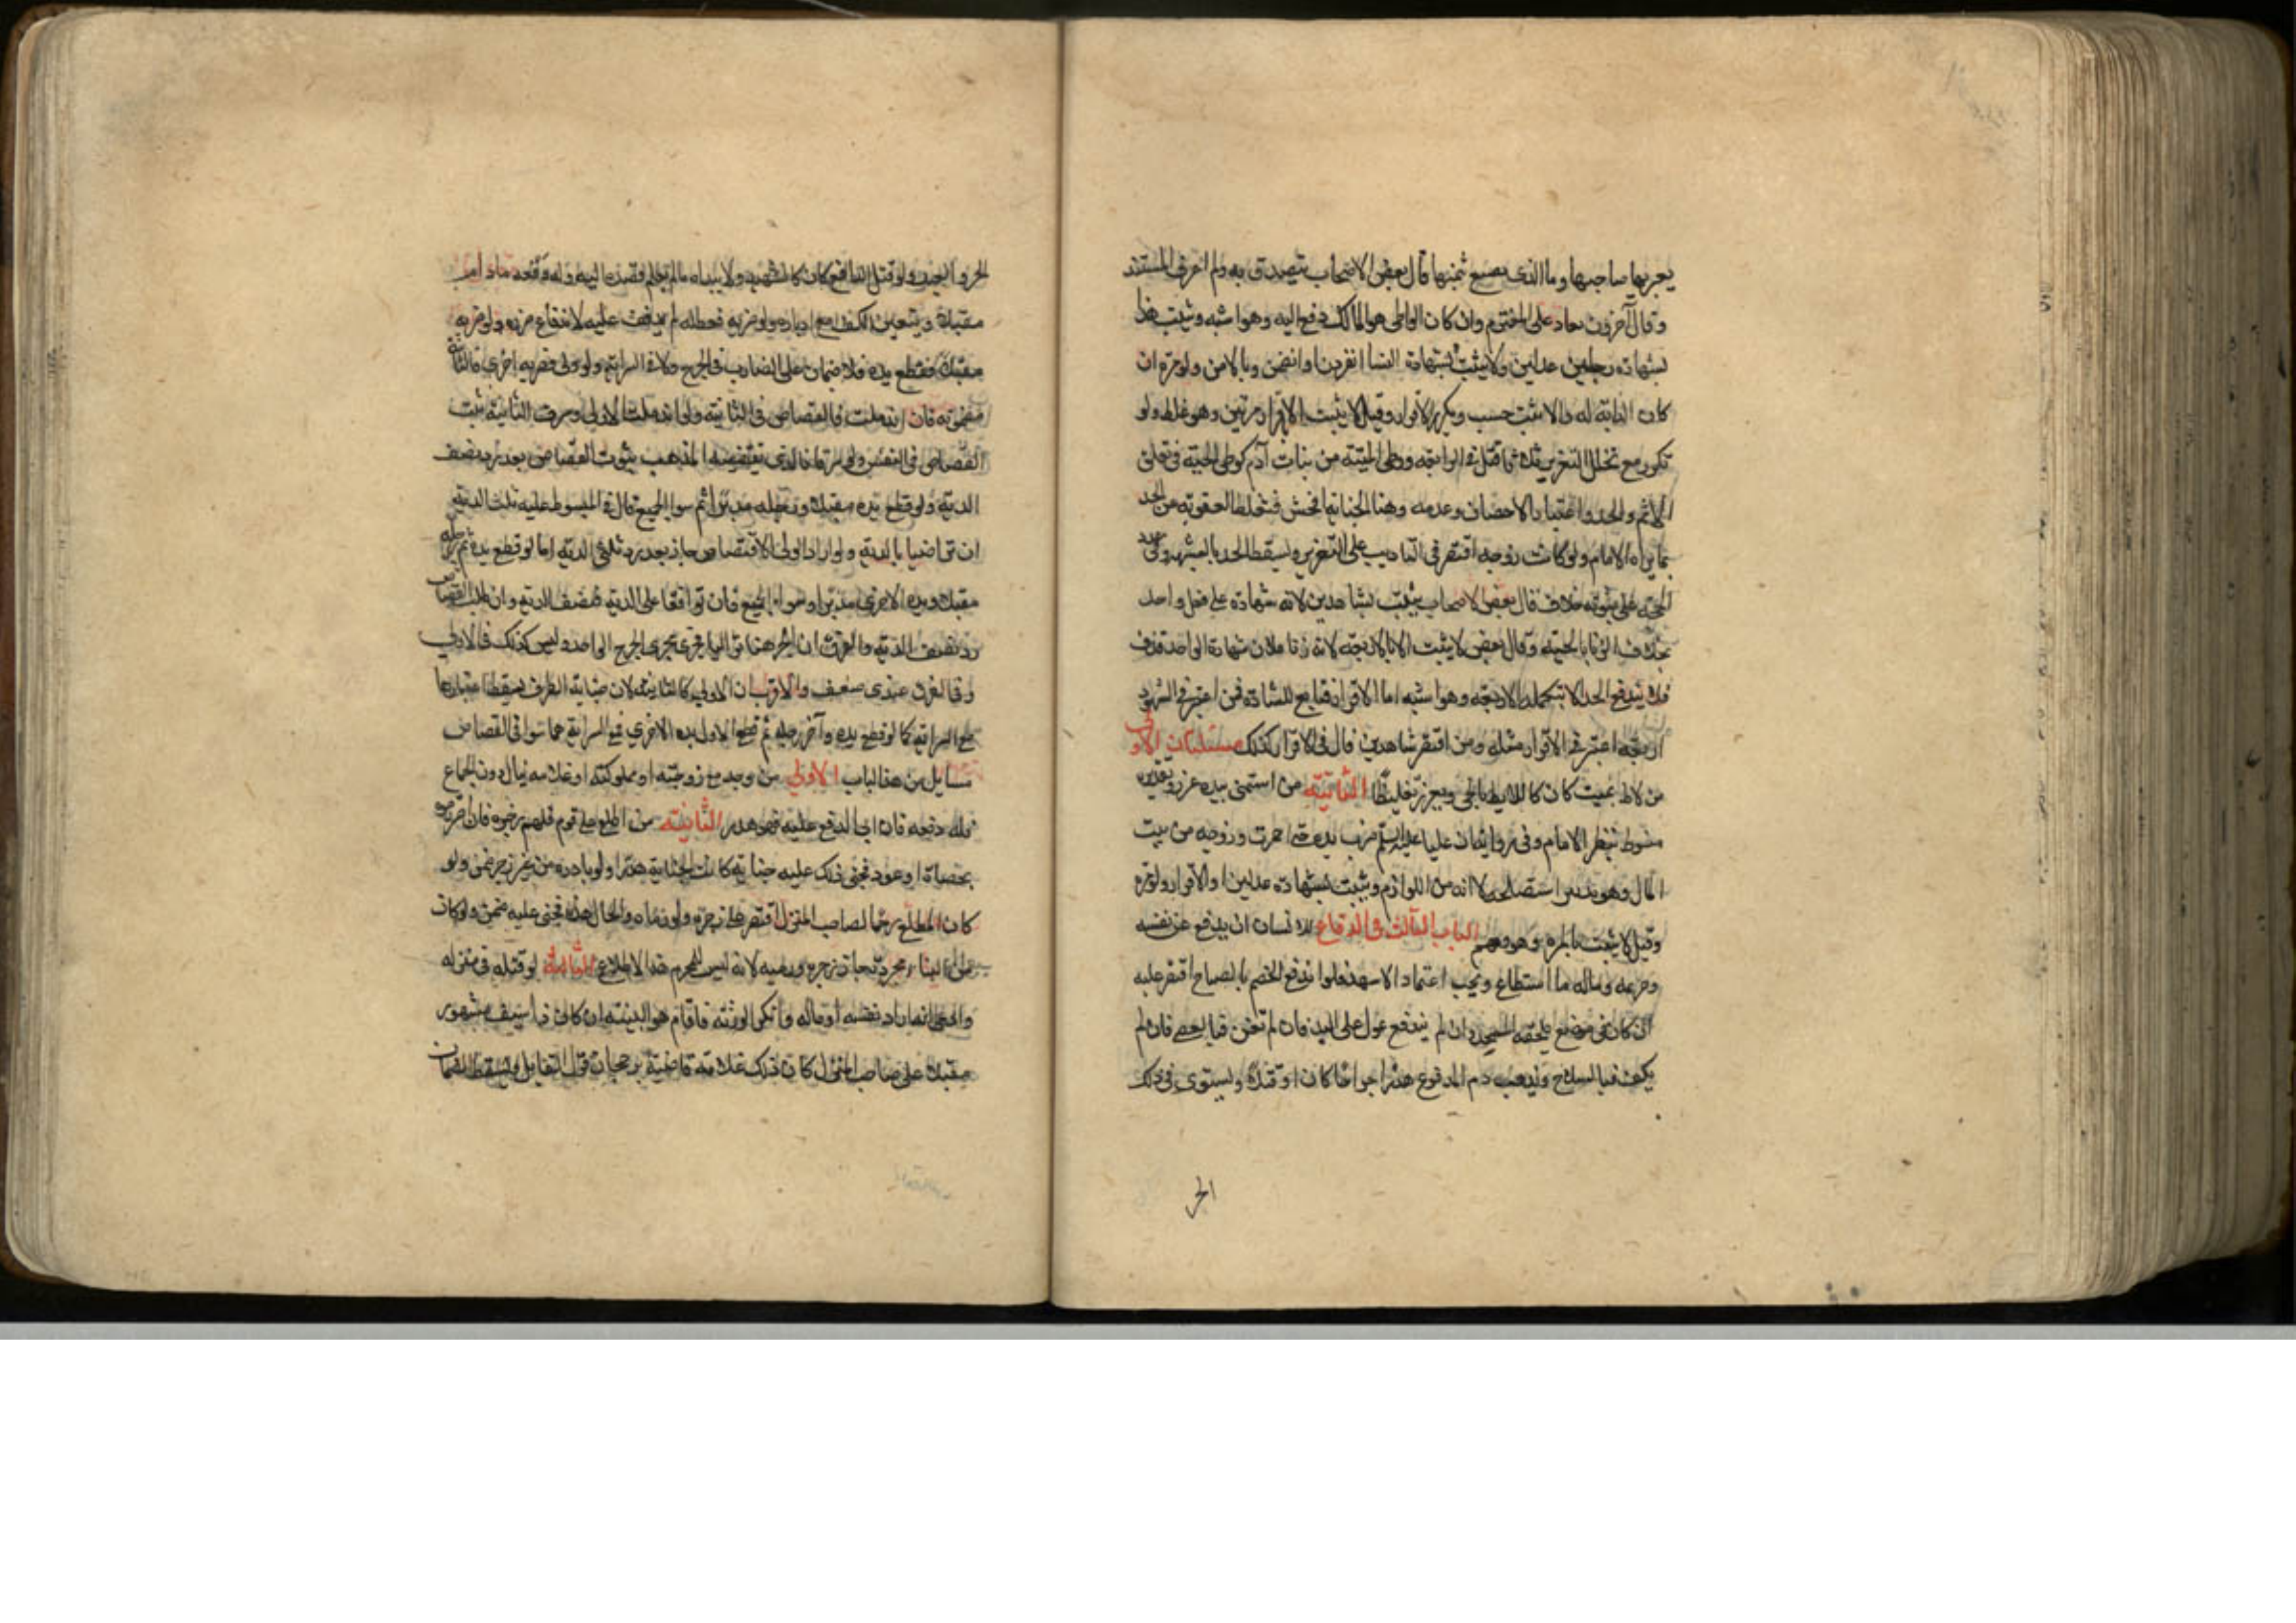 يعبر بها صاحبها وما الذي يصنع بثمنها قال بعض الاصحاب يتصدق به ولم اعرف المستند
وقال آخرون يعاد على المغترم وان كان الواطي هو المالك دفع اليه وهو اشبه ويثبت هذا
بشهادة رجلين عدلين ولا يثبت بشهادة النسا انفردن او انضممن وبالاقرار ولو مرة ان
كانت الدابة له والا ثبت حسب ويكرر الاقرار وقيل لا يثبت الا بالاقرار مرتين وهو غلط ولو
تكرر مع تخلل التعزير ثلاثا قتل في الرابعة ووطى الميتة من بنات آدم كوطى الحية في تعلق
الاثم والحد واعتبار الاحصان وعدمه وهنا الجناية افحش فتغلظ العقوبة عن الحد
بما يراه الامام ولو كانت زوجه اقتصر في التاديب على التعزير ويسقط الحد بالشبهة وفي عدد
الحجة على ثبوته خلاف قال بعض الاصحاب يثبت بشاهدين لانه شهادة على فعل واحد
بخلاف الزنا بالحية وقال بعض لا يثبت الا باربعة لانه زنا ولان شهادة الواحد قذف
فلا يندفع الحد الا بتكملة الاربعة وهو اشبه اما الاقرار فتابع للشهادة فمن اعتبر في الشهود
اربعة اعتبر في الاقرار مثله ومن اقتصر شاهدين قال في الاقرار كذلك مسئلتان الاولى
من لاط بميت كان كاللايط بالحي ويعزر تغليظا الثانية من استمنى بيده عزر وتعزيره
منوط بنظر الامام وفي رواية ان عليا عليه السلم ضرب يده حتى احمرت وزوجه من بيت
المال وهو تدبير استصلحه لا انه من اللوازم ويثبت بشهادة عدلين او الاقرار ولو مرة
وقيل لا يثبت بالمرة وهو وهم الباب الثالث في الدفاع للانسان ان يدفع عن نفسه
وحريمه وماله ما استطاع ويجب اعتماد الاسهل فلو اندفع الخصم بالصياح اقتصر عليه
ان كان في موضع يلحقه المنجد وان لم يندفع عول على اليد فان لم تغن فبالعصا فان لم
يكف فبالسلاح ويذهب دم المدفوع هدرا جراحا كان او قتلا ويستوى في ذلك
الحر
الحر والعبد ولو قتل الدافع كان كالشهيد ولا يبداه ما لم يعلم قصده اليه وله دفعه ما دام
مقبلا ويتعين الكف مع ادباره ولو ضربه فعطله لم يذفف عليه لاندفاع ضرره ولو ضربه
مقبلا فقطع يده فلا ضمان على الضارب في الجرح ولا في السراية ولو ولى فضربه اخرى فالثانية
مضمونه فان اندملت فالقصاص في الثانية ولو اندملت الاولى وسرت الثانية ثبت
القصاص في النفس ولو سرتا فالذي يقتضيه المذهب ثبوت القصاص بعد رد نصف
الدية ولو قطع يده مقبلا ورجله مدبرا ثم سرا الجميع قال في المبسوط عليه ثلث الدية
ان تراضيا بالدية ولو اراد الولي الاقتصاص جاز بعد رد ثلثي الدية اما لو قطع يده ثم رجله
مقبلا ويده الاخرى مدبرا وسرا الجميع فان توافقا على الدية فنصف الدية وان طلب القصاص
رد نصف الدية والفرق ان الجرحين هنا تواليا فجرى مجرى الجرح الواحد وليس كذلك في الاولى
وفي الفرق عندي ضعف والاقرب ان الاولى كالثانية لان جناية الطرف يسقط اعتبارها
مع السراية كما لو قطع يده وآخر رجله ثم قطع الاول يده الاخرى فمع السراية هما سوا في القصاص
مسايل من هذا الباب الاولى من وجد مع زوجته او مملوكته او غلامه من ينال دون الجماع
فله دفعه فان ابى الدفع عليه فهو هدر الثانية من اطلع على قوم فلهم زجره فان اصر فرموه
بحصاة او عود فجنى ذلك عليه جناية كانت الجناية هدرا ولو بادره من غير زجر ضمن ولو
كان المطلع رحما لصاحب المنزل اقتصر على زجره ولو رماه والحال هذه فجنى عليه ضمن ولو كان
من النسا مجردة جاز زجره ورميه لانه ليس للمحرم هذا الاطلاع الثالثة لو قتله في منزله
وادعى انه اراد نفسه او ماله وانكر الورثة فاقام هو البينة ان كان ذا سيف مشهور
مقبلا على صاحب المنزل كان ذلك علامة قاضية برجحان قول القاتل ويسقط الضمان